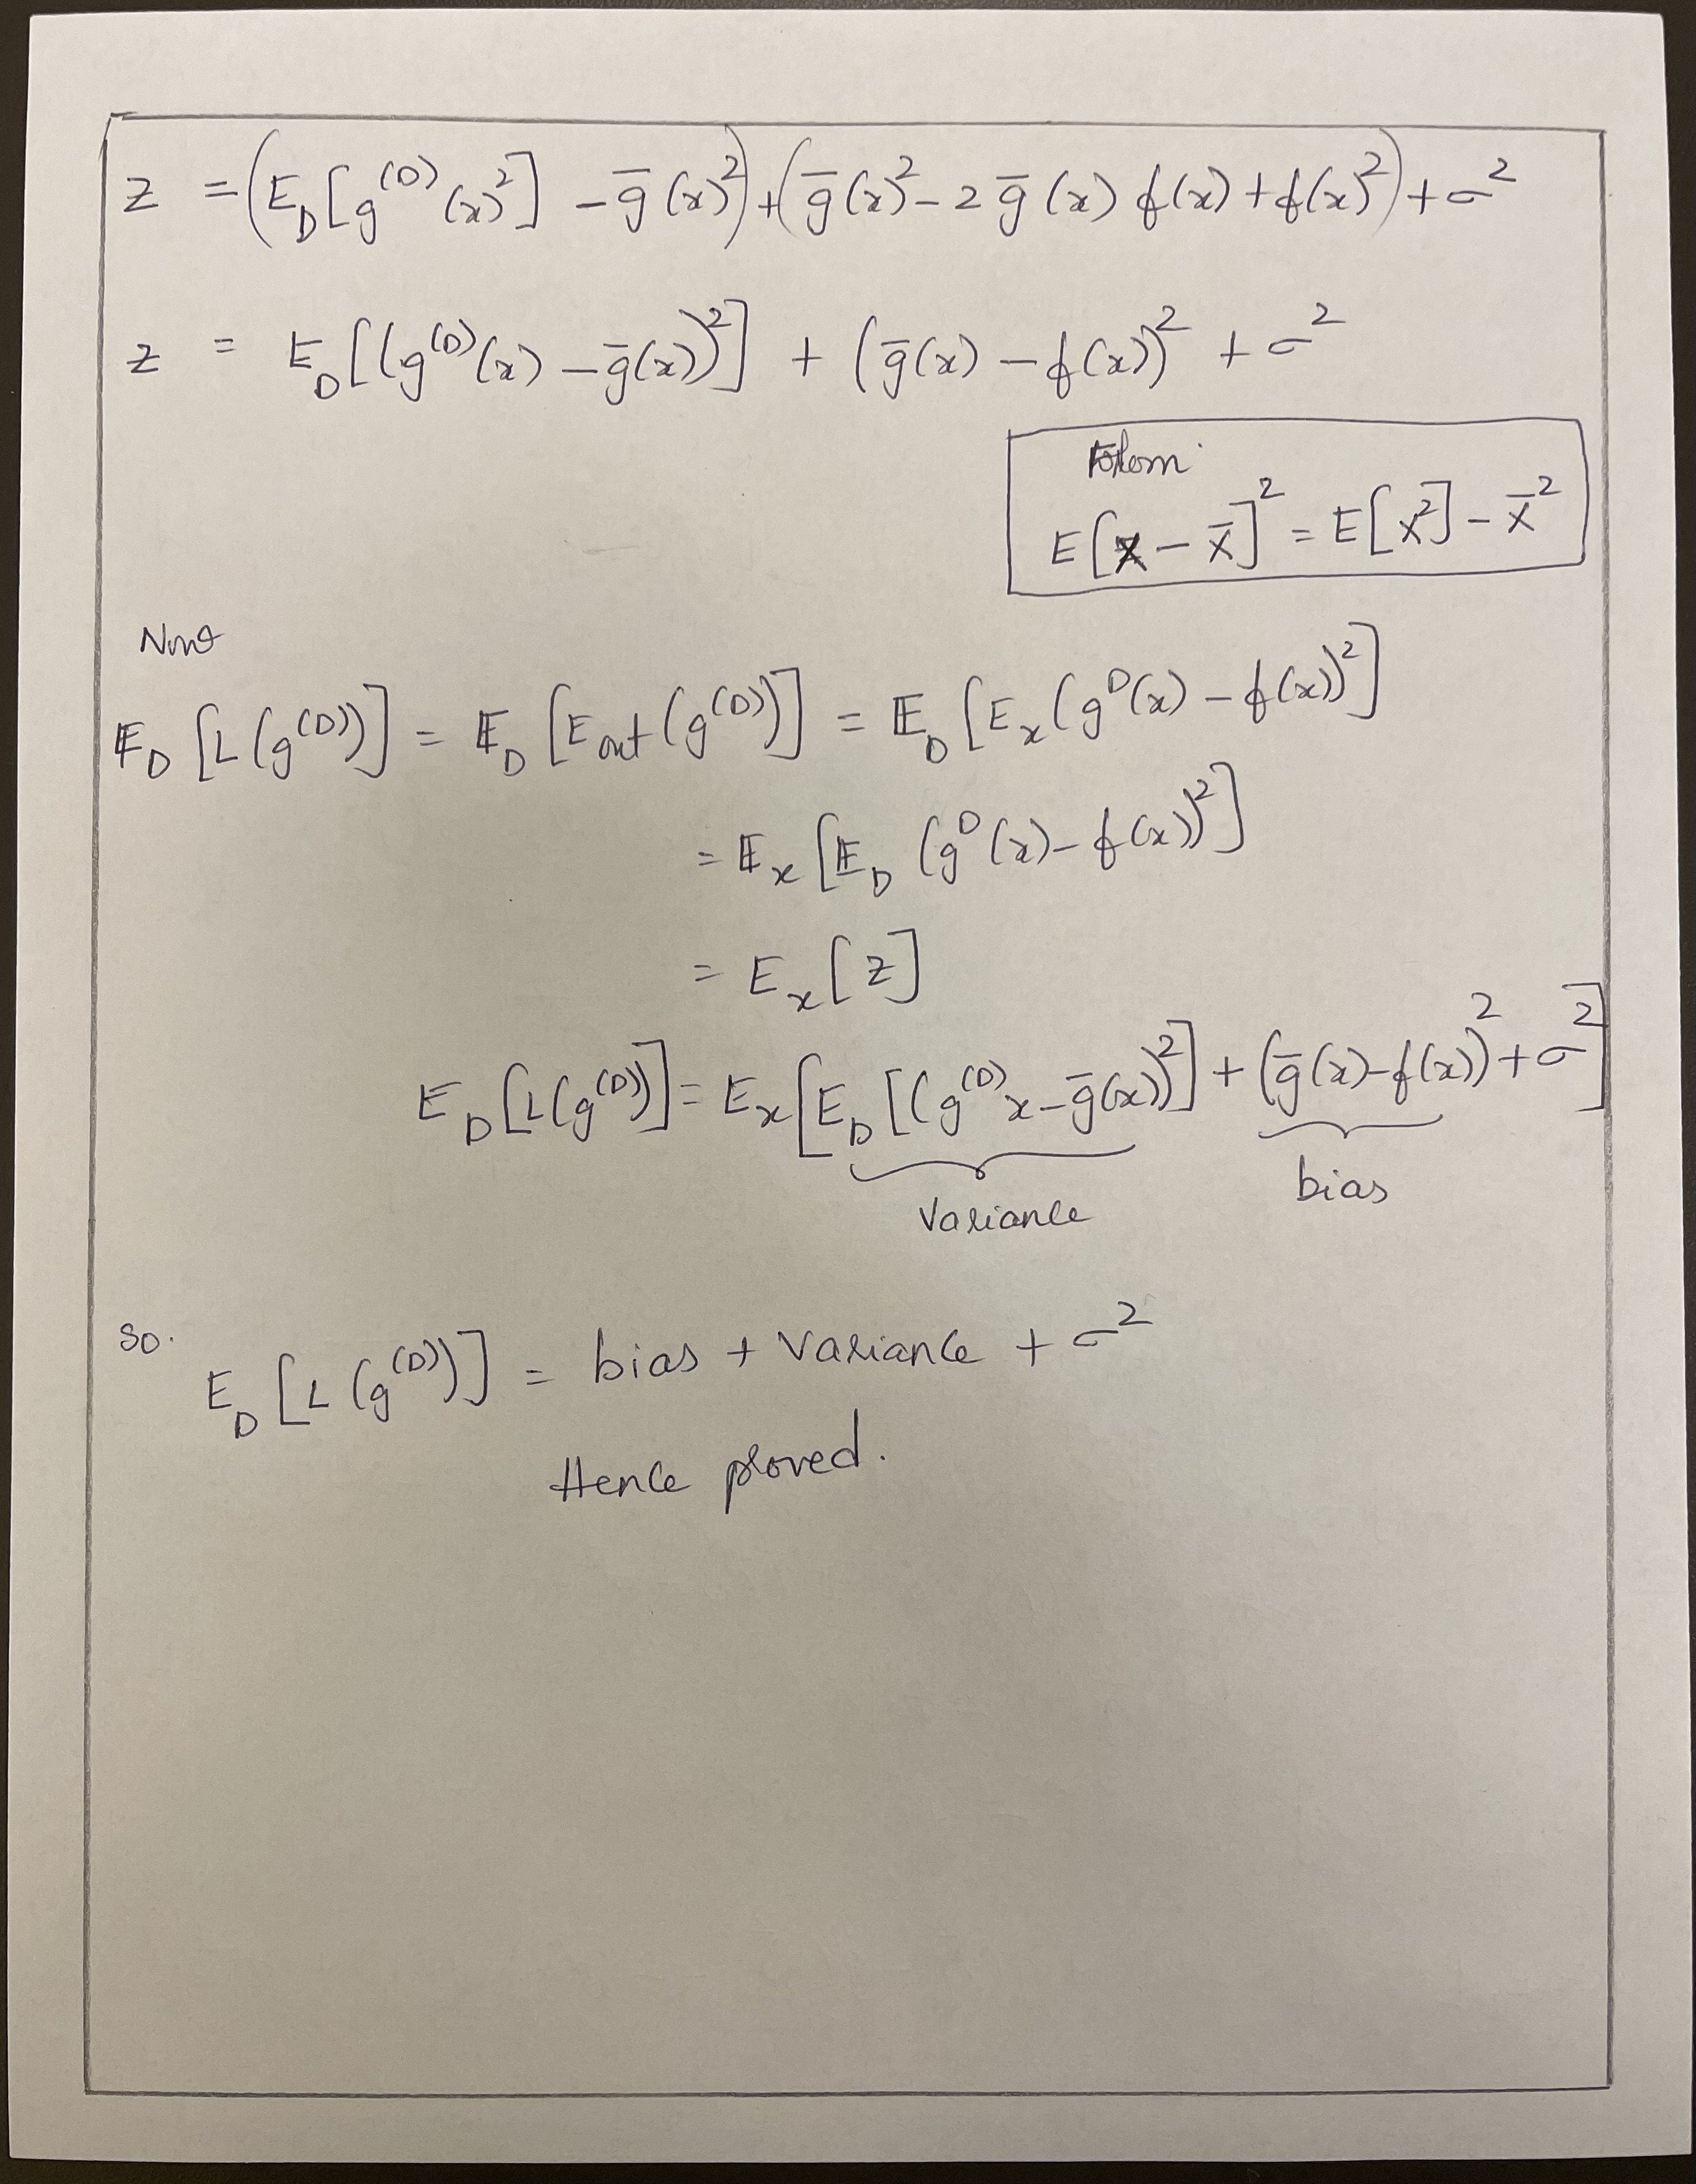 z = (E_D[g^(D)(x)^2] - g̅(x)^2) + (g̅(x)^2 - 2 g̅(x) f(x) + f(x)^2) + σ^2
z = E_D[(g^(D)(x) - g̅(x))^2] + (g̅(x) - f(x))^2 + σ^2
E[x - x̅]^2 = E[x^2] - x̅^2
Now
E_D[L(g^(D))] = E_D[E_out(g^(D))] = E_D[E_x(g^D(x) - f(x))^2]
= E_x[E_D(g^D(x) - f(x))^2]
= E_x[z]
E_D[L(g^(D))] = E_x[E_D[(g^(D)x - g̅(x))^2] + (g̅(x) - f(x))^2 + σ^2]
Variance bias
So.
E_D[L(g^(D))] = bias + Variance + σ^2
Hence proved.